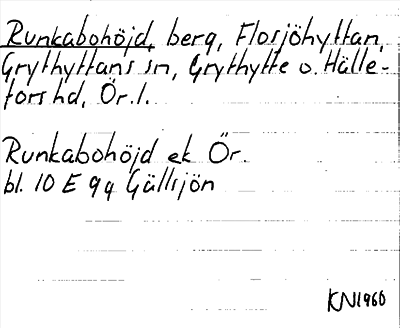 Runkabohöjd, berg, Flosjöhyttan,
Grythyttans sn, Grythytte o. Hälle-
fors hd, Ör. l.
Runkabohöjd ek Ör.
bl. 10 E 9 g Gällsjön
KN1960